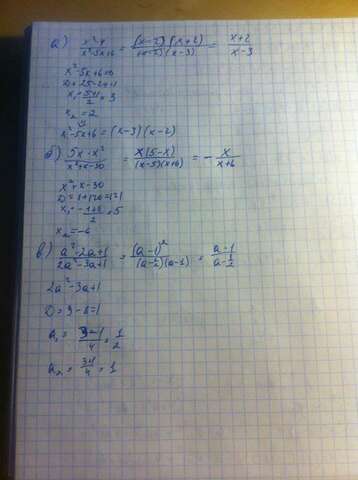 а) x²-4 / x²-5x+6 = (x-2)(x+2) / (x-2)(x-3) = x+2 / x-3
x²-5x+6=0
D=25-24=1
x₁=5+1 / 2=3
x₂=2
x²-5x+6=(x-3)(x-2)
б) 5x-x² / x²+x-30 = x(5-x) / (x-5)(x+6) = - x / x+6
x²+x-30
D=1+120=121
x₁=-1+11 / 2=5
x₂=-6
в) a²-2a+1 / 2a²-3a+1 = (a-1)² / (a-½)(a-1) = a-1 / a-½
2a²-3a+1
D=9-8=1
a₁=3-1 / 4=1/2
a₂=3+1 / 4=1